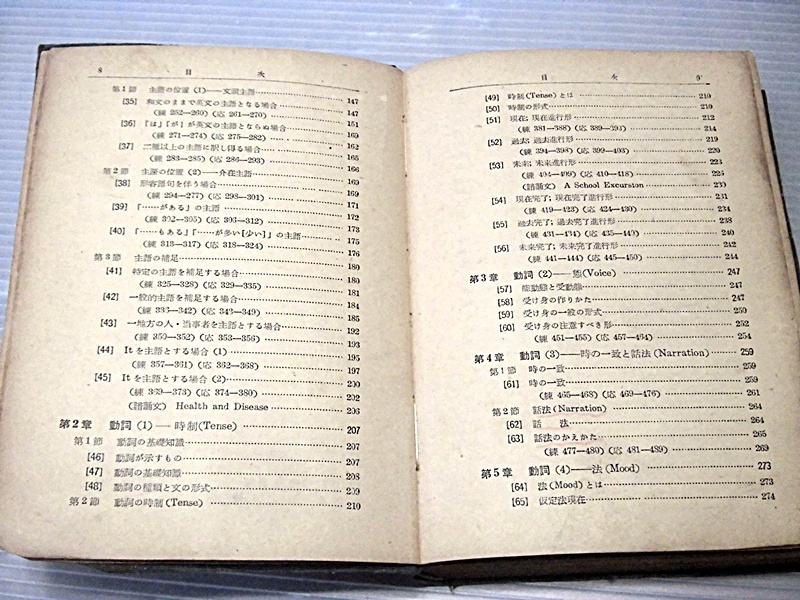 8 目次
第1節 主語の位置 (1)──文頭主語 147
[35] 和文のままで英文の主語となる場合 147
(練 252—260) (応 261—270) 151
[36] 『は』『が』が英文の主語とならぬ場合 160
(練 271—274) (応 275—282) 162
[37] 二種以上の主語に訳し得る場合 165
(練 283—285) (応 286—293) 166
第2節 主語の位置 (2)──介在主語 169
[38] 形容語句を伴う場合 169
(練 294—277) (応 298—301) 171
[39] 『……がある』の主語 172
(練 302—305) (応 306—312) 173
[40] 『……もある』『……が多い[少い]』の主語 175
(練 313—317) (応 318—324) 176
第3節 主語の補足 180
[41] 特定の主語を補足する場合 180
(練 325—328) (応 329—335) 181
[42] 一般的主語を補足する場合 184
(練 336—342) (応 343—349) 185
[43] 一地方の人・当事者を主語とする場合 192
(練 350—352) (応 353—356) 193
[44] It を主語とする場合 (1) 195
(練 357—361) (応 362—368) 197
[45] It を主語とする場合 (2) 200
(練 369—373) (応 374—380) 202
(諳誦文) Health and Disease 206
第2章 動詞 (1)── 時制 (Tense) 207
第1節 動詞の基礎知識 207
[46] 動詞が示すもの 207
[47] 動詞の基礎知識 208
[48] 動詞の種類と文の形式 209
第2節 動詞の時制 (Tense) 210
目次 9
[49] 時制 (Tense) とは 210
[50] 時制の形式 210
[51] 現在; 現在進行形 212
(練 381—388) (応 389—393) 214
[52] 過去; 過去進行形 219
(練 394—398) (応 399—403) 220
[53] 未来; 未来進行形 223
(練 404—409) (応 410—418) 225
(諳誦文) A School Excursion 230
[54] 現在完了; 現在完了進行形 231
(練 419—423) (応 424—430) 234
[55] 過去完了; 過去完了進行形 238
(練 431—434) (応 435—440) 240
[56] 未来完了; 未来完了進行形 242
(練 441—444) (応 445—450) 244
第3章 動詞 (2)──態 (Voice) 247
[57] 能動態と受動態 247
[58] 受け身の作りかた 247
[59] 受け身の一般の形式 250
[60] 受け身の注意すべき形 252
(練 451—455) (応 457—464) 254
第4章 動詞 (3)──時の一致と話法 (Narration) 259
第1節 時の一致 259
[61] 時の一致 259
(練 465—468) (応 469—476) 261
第2節 話法 (Narration) 264
[62] 話法 264
[63] 話法のかえかた 265
(練 477—480) (応 481—489) 269
第5章 動詞 (4)──法 (Mood) 273
[64] 法 (Mood) とは 273
[65] 仮定法現在 274